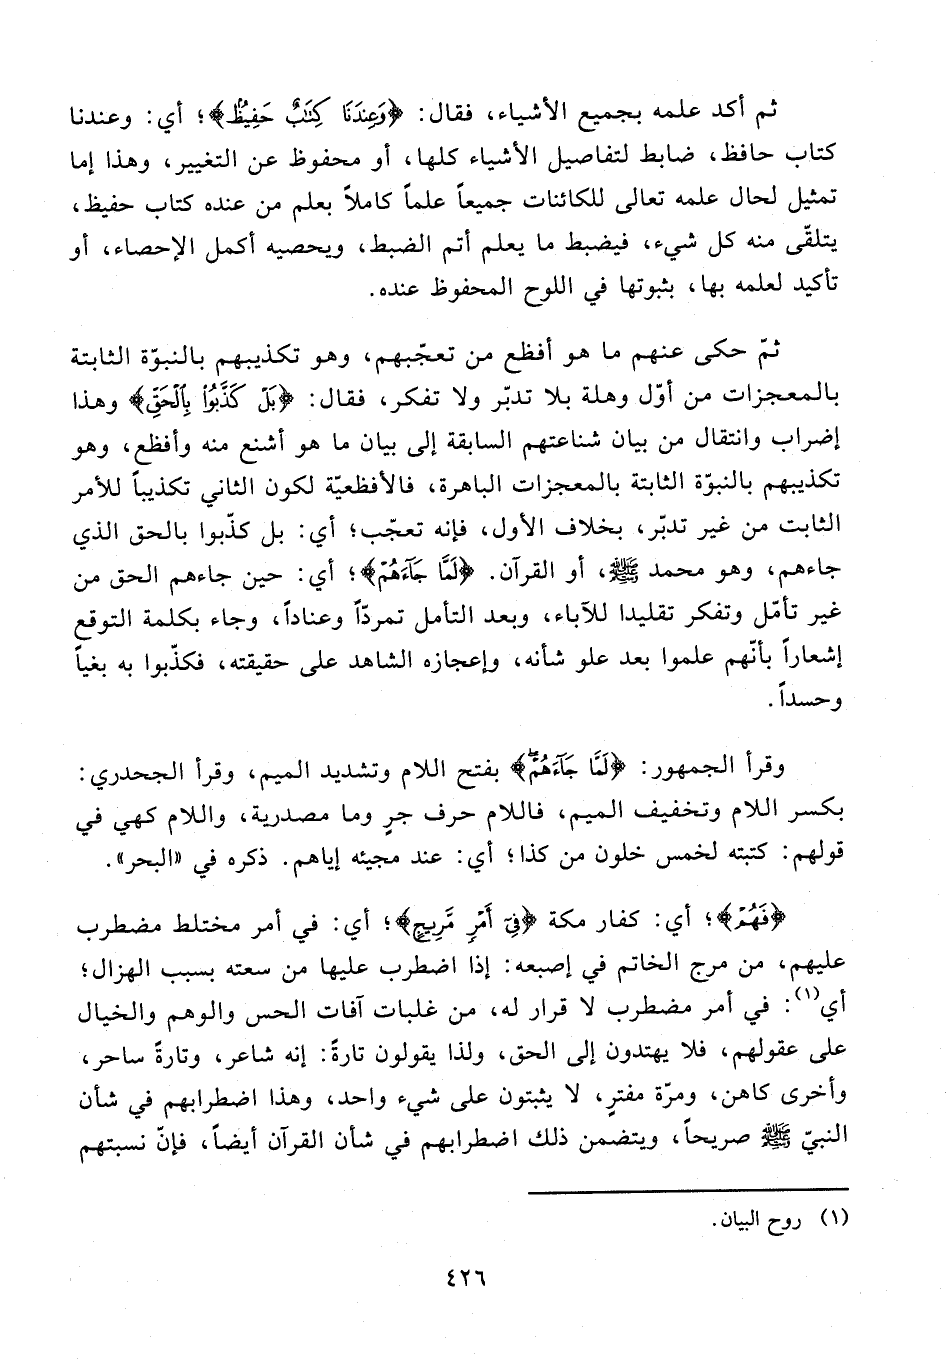 ثم أكد علمه بجميع الأشياء، فقال: ﴿وَعِندَنَا كِتَٰبٌ حَفِيظٌۢ﴾؛ أي: وعندنا
كتاب حافظ، ضابط لتفاصيل الأشياء كلها، أو محفوظ عن التغيير، وهذا إما
تمثيل لحال علمه تعالى للكائنات جميعاً علماً كاملاً بعلم من عنده كتاب حفيظ،
يتلقّى منه كل شيء، فيضبط ما يعلم أتم الضبط، ويحصيه أكمل الإحصاء، أو
تأكيد لعلمه بها، بثبوتها في اللوح المحفوظ عنده.
ثمّ حكى عنهم ما هو أفظع من تعجّبهم، وهو تكذيبهم بالنبوّة الثابتة
بالمعجزات من أوّل وهلة بلا تدبّر ولا تفكر، فقال: ﴿بَلْ كَذَّبُوا۟ بِٱلْحَقِّ﴾ وهذا
إضراب وانتقال من بيان شناعتهم السابقة إلى بيان ما هو أشنع منه وأفظع، وهو
تكذيبهم بالنبوّة الثابتة بالمعجزات الباهرة، فالأفظعيّة لكون الثاني تكذيباً للأمر
الثابت من غير تدبّر، بخلاف الأول، فإنه تعجّب؛ أي: بل كذّبوا بالحق الذي
جاءهم، وهو محمد ﷺ، أو القرآن. ﴿لَمَّا جَآءَهُمْ﴾؛ أي: حين جاءهم الحق من
غير تأمّل وتفكر تقليدا للآباء، وبعد التأمل تمردّاً وعناداً، وجاء بكلمة التوقع
إشعاراً بأنّهم علموا بعد علو شأنه، وإعجازه الشاهد على حقيقته، فكذّبوا به بغياً
وحسداً.
وقرأ الجمهور: ﴿لَمَّا جَآءَهُمْ﴾ بفتح اللام وتشديد الميم، وقرأ الجحدري:
بكسر اللام وتخفيف الميم، فاللام حرف جرٍ وما مصدرية، واللام كهي في
قولهم: كتبته لخمس خلون من كذا؛ أي: عند مجيئه إياهم. ذكره في «البحر».
﴿فَهُمْ﴾؛ أي: كفار مكة ﴿فِىٓ أَمْرٍ مَّرِيجٍ﴾؛ أي: في أمر مختلط مضطرب
عليهم، من مرج الخاتم في إصبعه: إذا اضطرب عليها من سعته بسبب الهزال؛
أي(١): في أمر مضطرب لا قرار له، من غلبات آفات الحس والوهم والخيال
على عقولهم، فلا يهتدون إلى الحق، ولذا يقولون تارةً: إنه شاعر، وتارةً ساحر،
وأخرى كاهن، ومرّة مفترٍ، لا يثبتون على شيء واحد، وهذا اضطرابهم في شأن
النبيّ ﷺ صريحاً، ويتضمن ذلك اضطرابهم في شأن القرآن أيضاً، فإنّ نسبتهم
(١) روح البيان.
٤٢٦